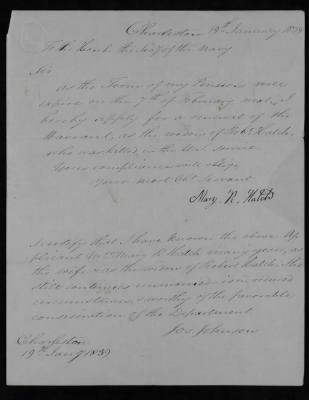 Charleston 19th January 1839
To the Honble the Secy of the Navy
Sir
As the Term of my Pension will
expire on the 7th of February next, I
hereby apply for a renewal of the
Warrant, as the widow of Robt Hatch
who was killed in the U.S. service
Your compliance will oblige
Your most Obt Servant
Mary R. Hatch
I certify that I have known the above Ap
plicant Mrs Mary R Hatch many years, as
the wife & as the widow of Robert Hatch. She
still continues unmarried in
circumstances, & worthy of the favorable
consideration of the Department
Jos. Johnson
Charleston
19th Jany 1839